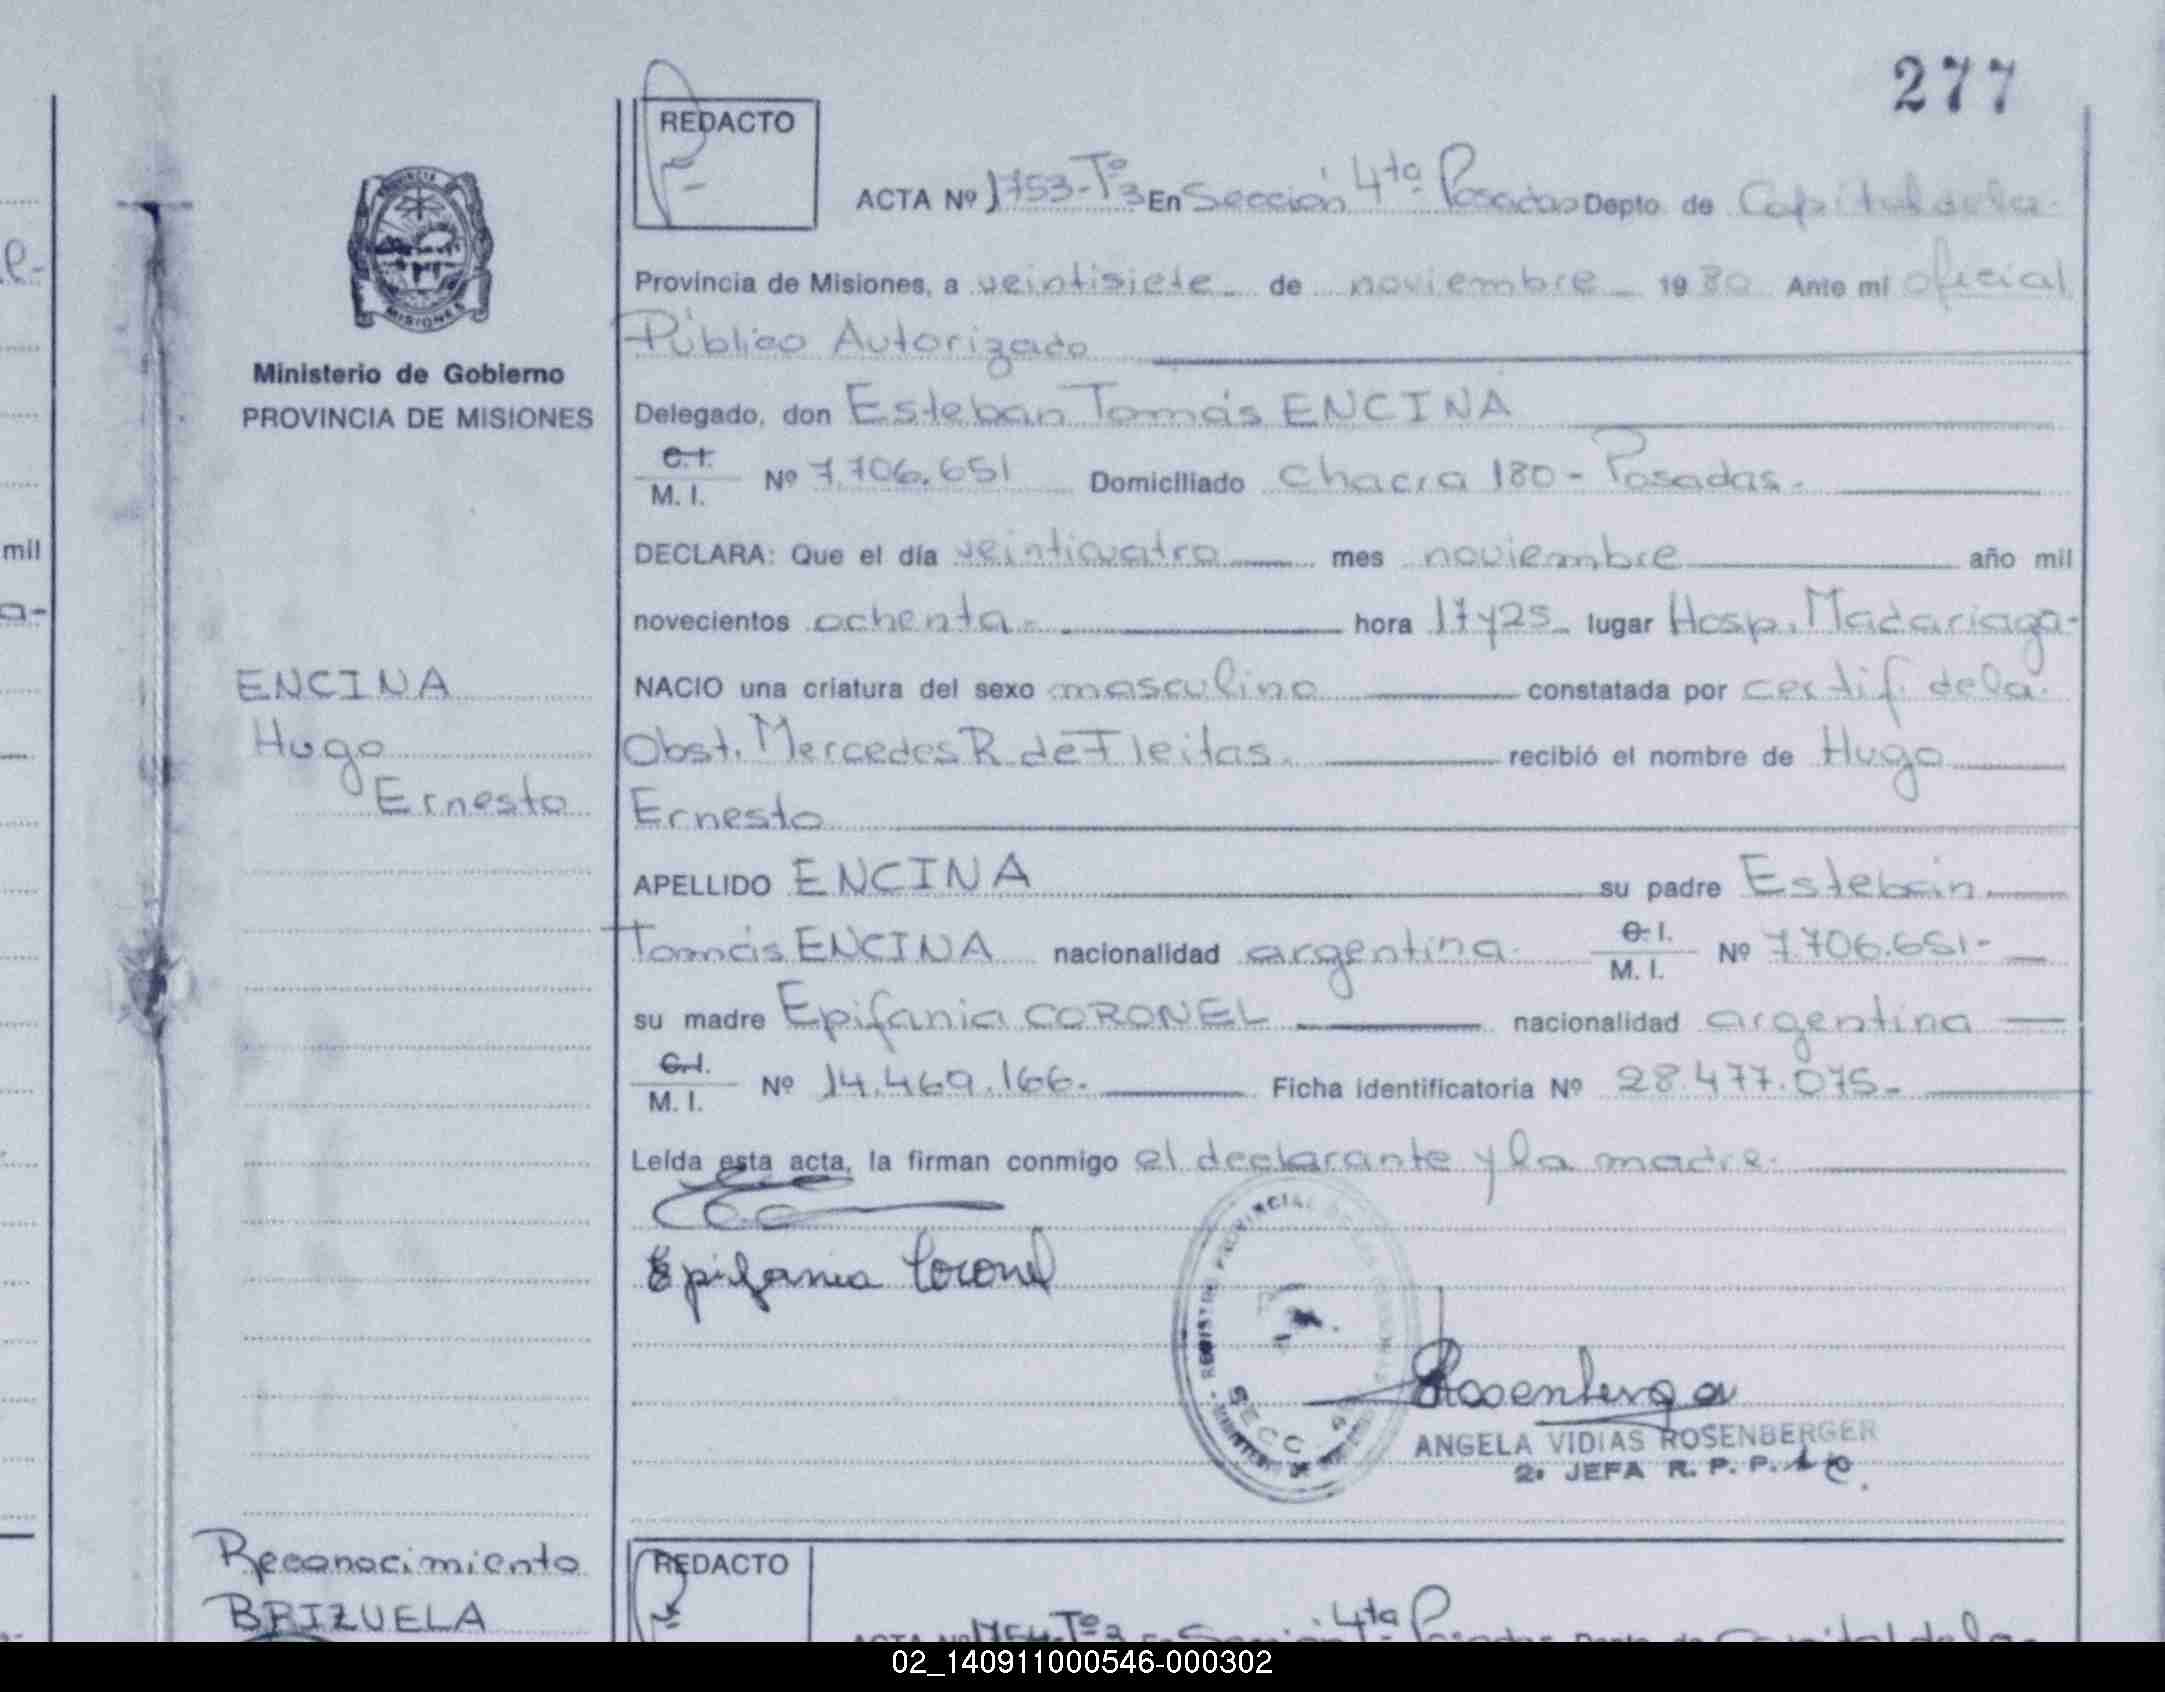 277
REDACTO
ACTA Nº 1753-Tº3 En Sección 4ta Posadas Depto. de Capital de la
Provincia de Misiones, a veintisiete de noviembre 1980 Ante mí oficial
Público Autorizado
Delegado, don Esteban Tomás ENCINA
C. I.
M. I. Nº 7.706.651 Domiciliado Chacra 180 - Posadas.
DECLARA: Que el día veinticuatro mes noviembre año mil
novecientos ochenta- hora 17y25 lugar Hosp. Madariaga-
NACIO una criatura del sexo masculino constatada por certif. de la
Obst. Mercedes R. de Fleitas. recibió el nombre de Hugo
Ernesto
APELLIDO ENCINA su padre Esteban
Tomás ENCINA nacionalidad argentina C. I.
M. I. Nº 7.706.651-
su madre Epifania CORONEL nacionalidad argentina
C. I.
M. I. Nº 14.469.166. Ficha identificatoria Nº 28.477.075-
Leída esta acta, la firman conmigo el declarante y la madre.
Epifania Coronel
REGISTRO PROVINCIAL
SECC
Rosenberger
ANGELA VIDIAS ROSENBERGER
2ª JEFA R. P. P.
PROVINCIA DE
MISIONES
Ministerio de Gobierno
PROVINCIA DE MISIONES
ENCINA
Hugo
Ernesto
Reconocimiento
BRIZUELA
REDACTO
ACTA Nº 1754-Tº3 En Sección 4ta Posadas Depto. de Capital de la
mil
02_140911000546-000302